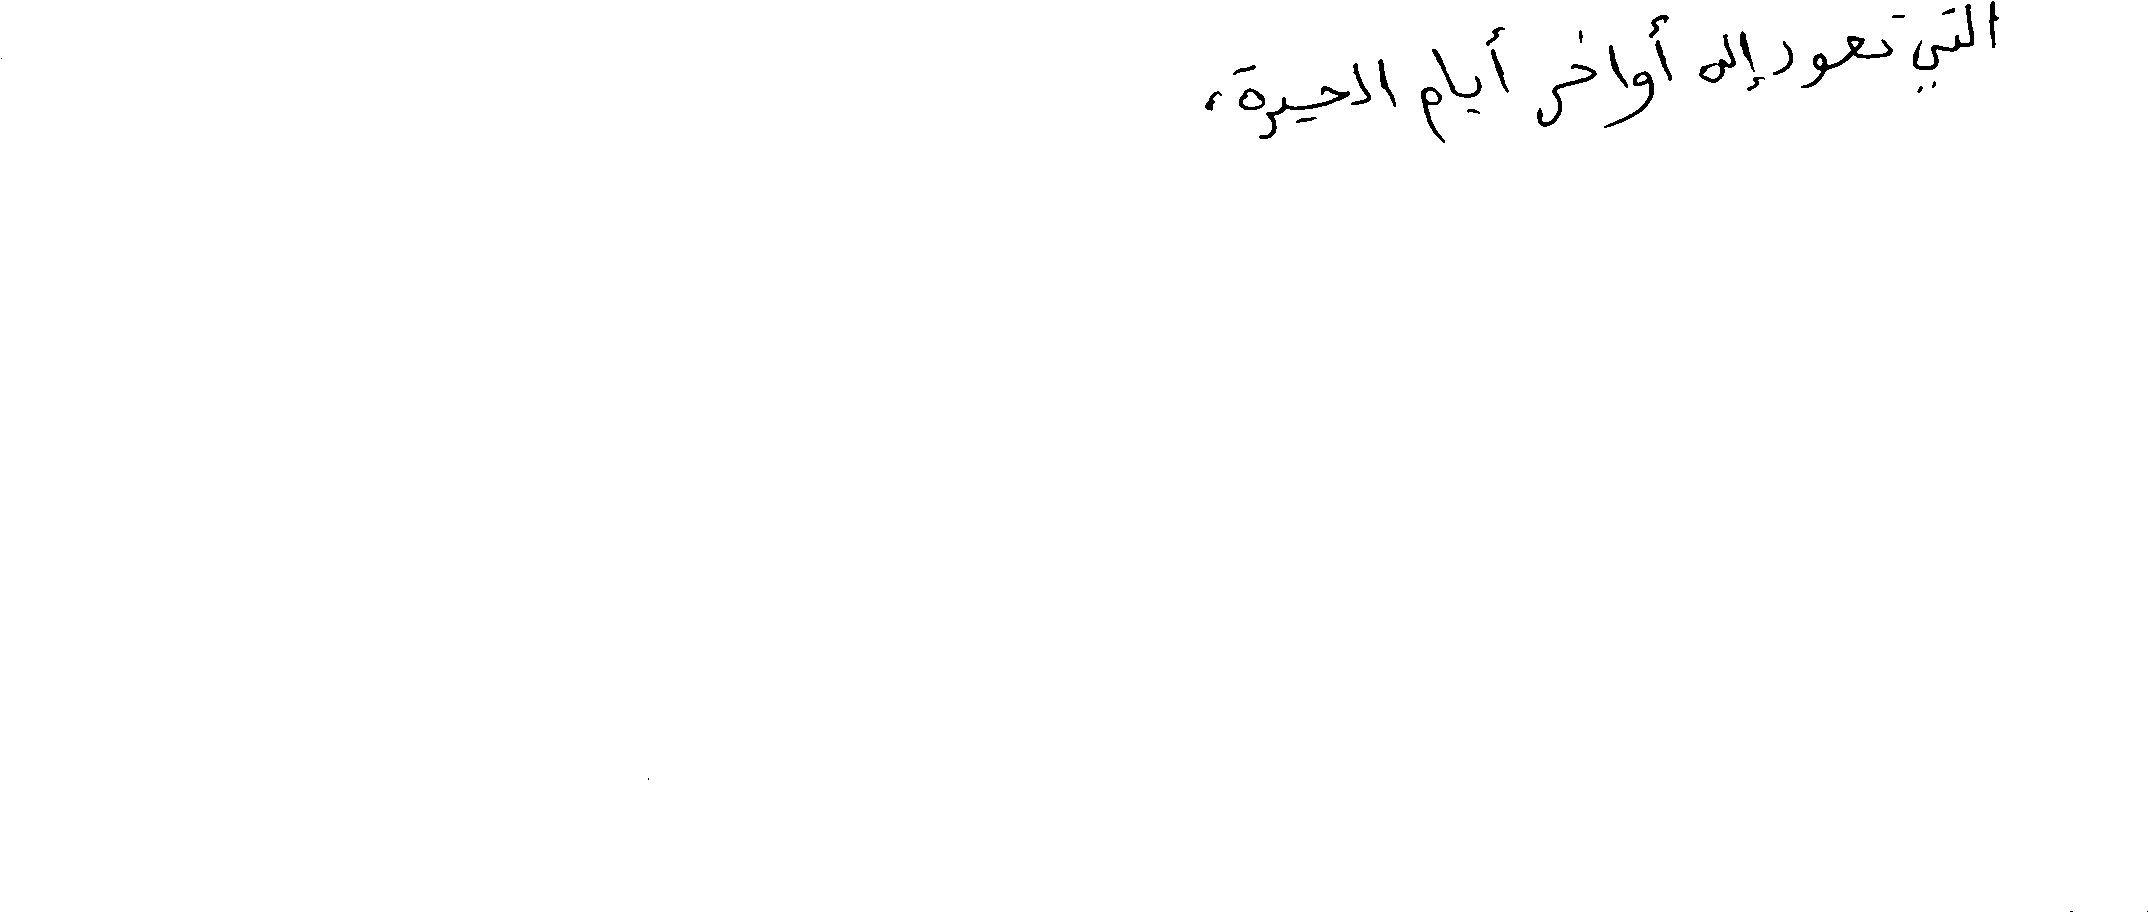 التي تعود إلى أواخر أيام الحيرة،